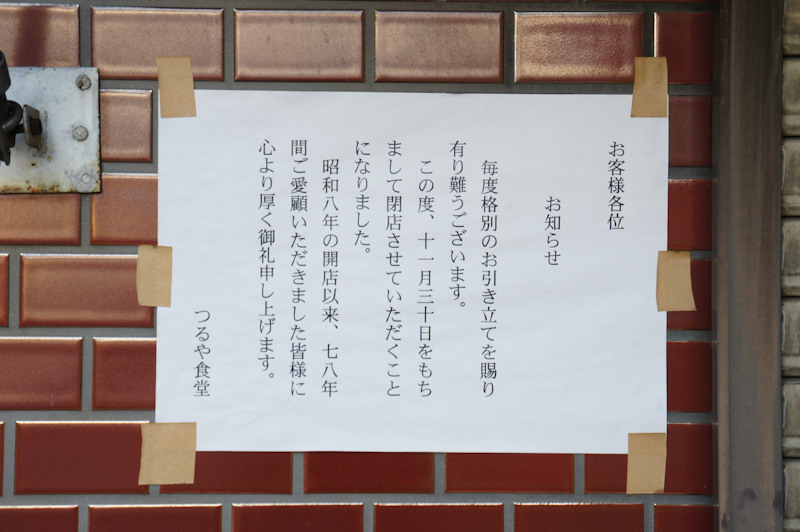 お客様各位
お知らせ
毎度格別のお引き立てを賜り
有り難うございます。
この度、十一月三十日をもち
まして閉店させていただくこと
になりました。
昭和八年の開店以来、七八年
間ご愛顧いただきました皆様に
心より厚く御礼申し上げます。
つるや食堂